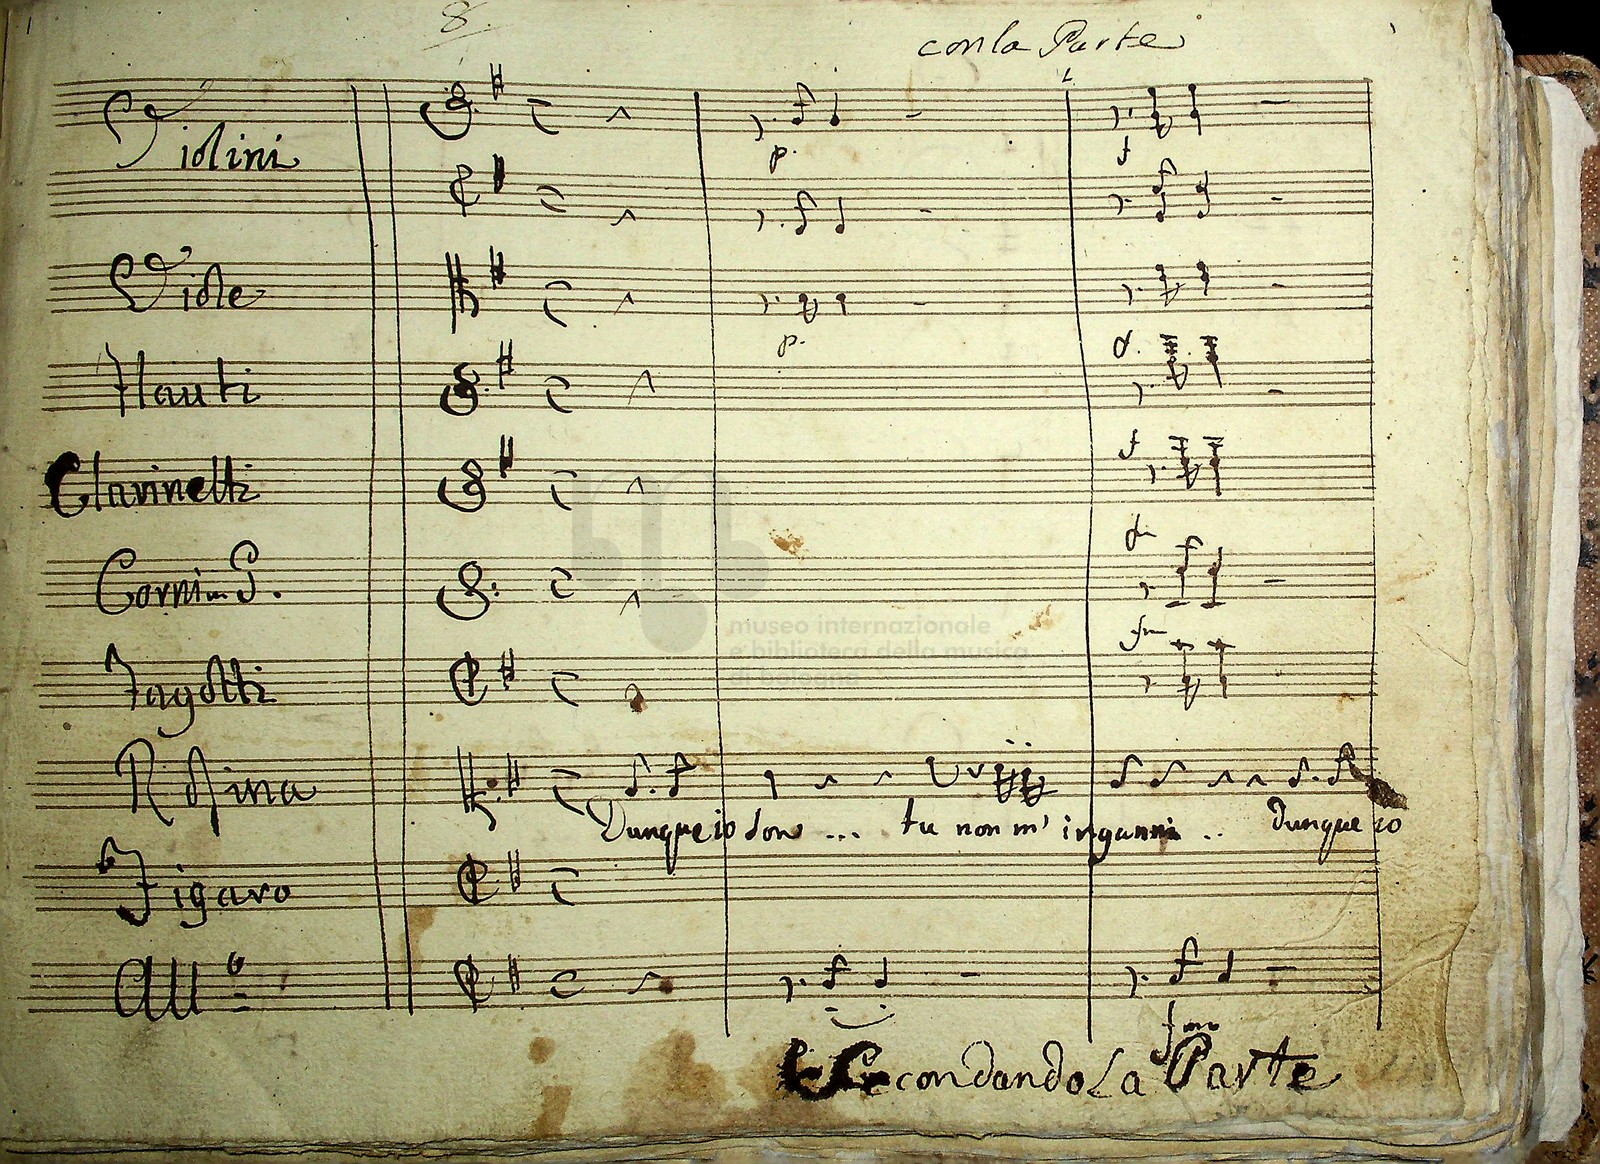 8
con la Parte
Violini
p.
f
Viole
p.
Flauti
f.
Clarinetti
f
Corni in G.
fm
museo internazionale
e biblioteca della musica
di bologna
Fagotti
fm
Rosina
Dunque io son ... tu non m' inganni .. Dunque io
Figaro
All°
fmo
Secondando La Parte